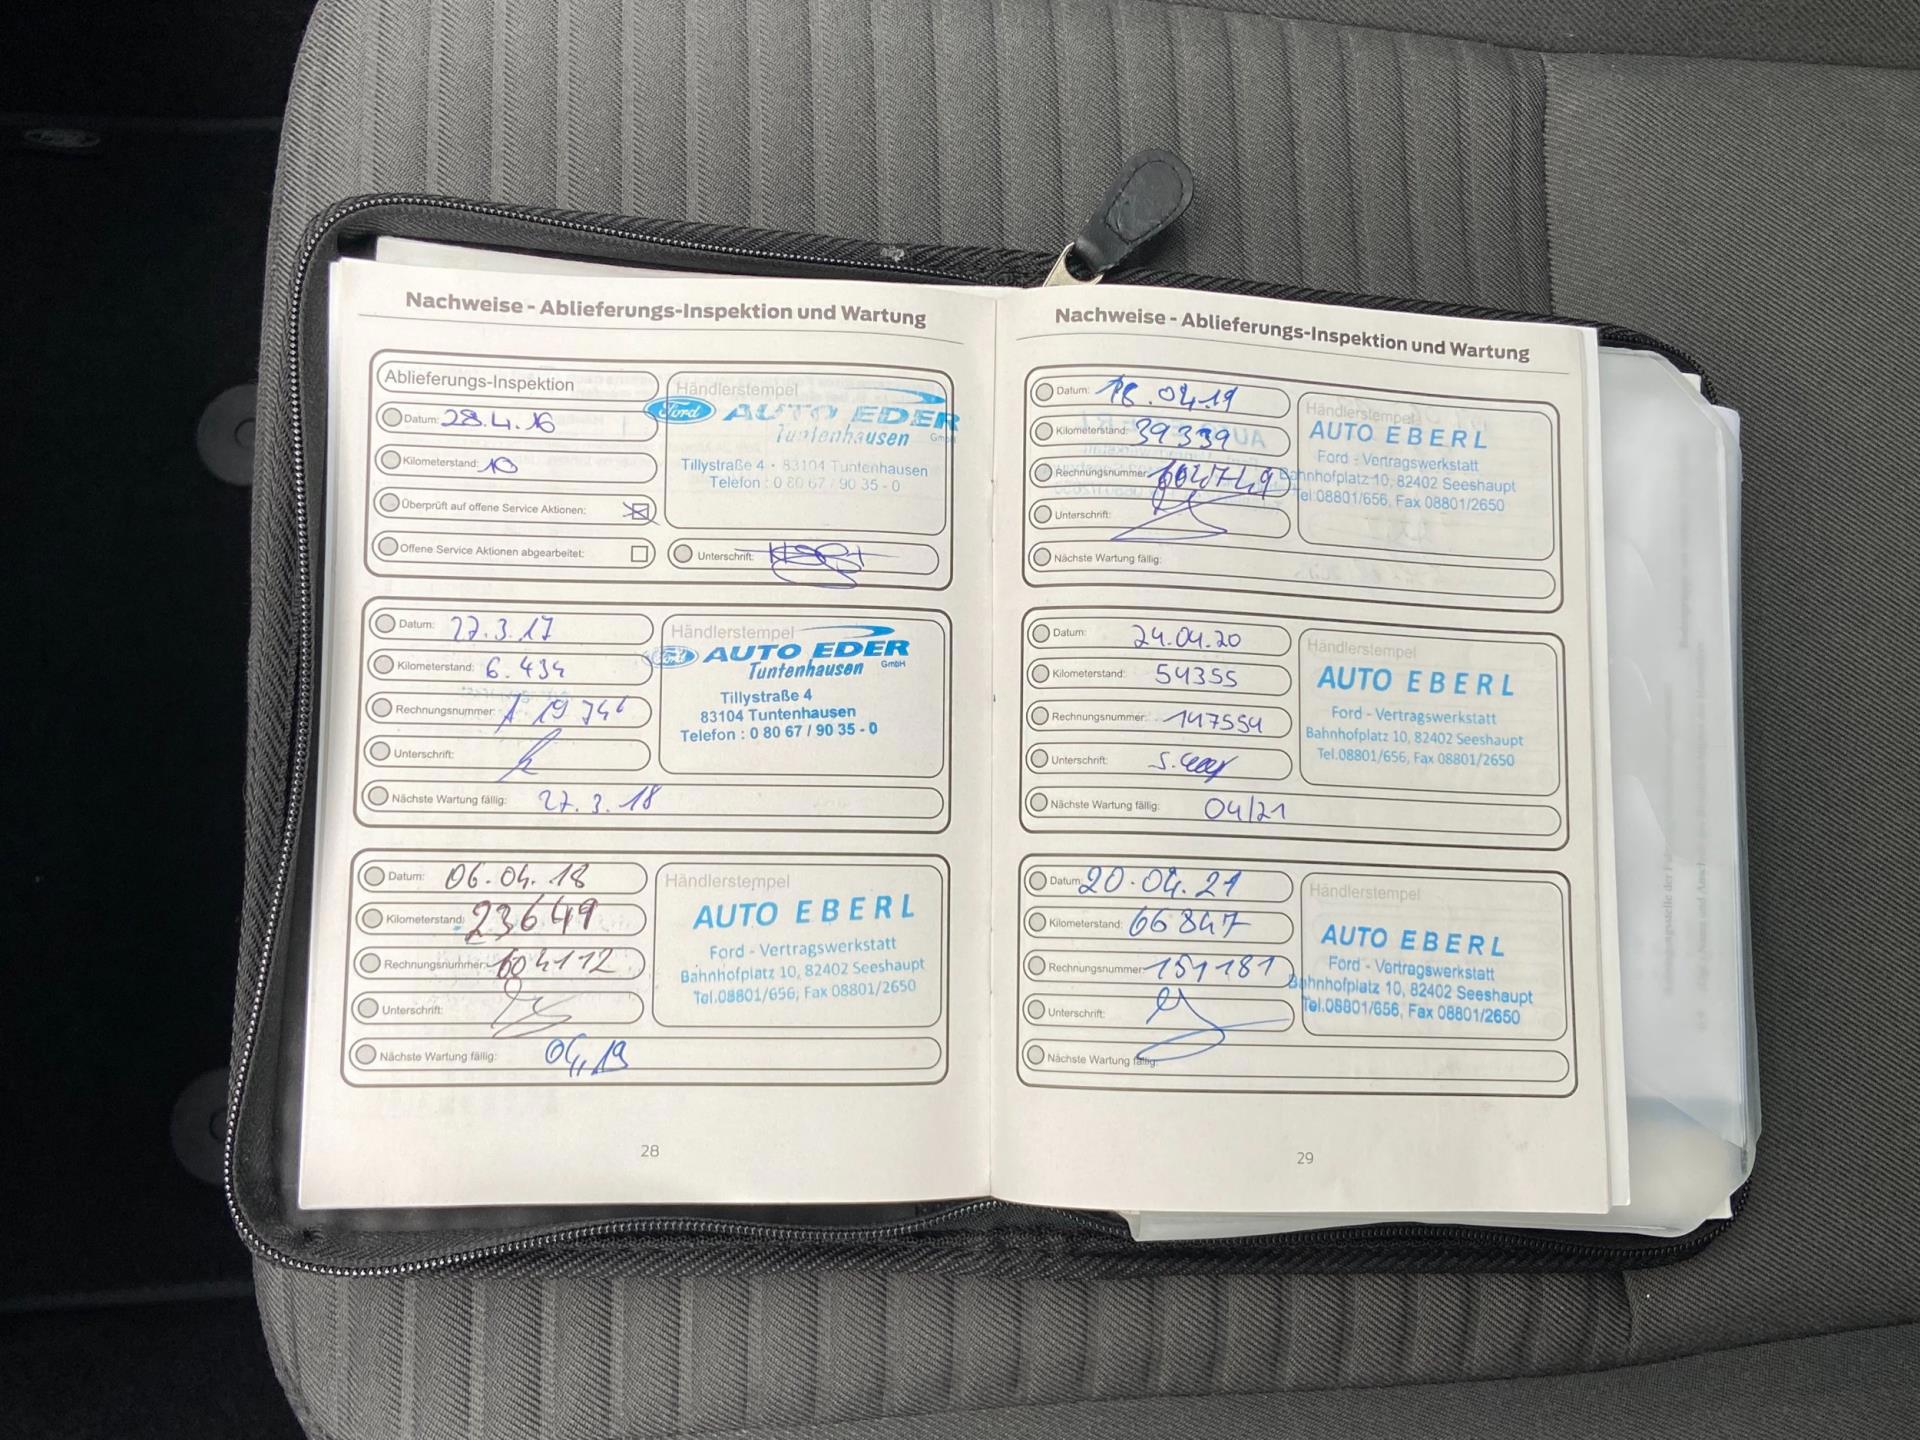 Nachweise - Ablieferungs-Inspektion und Wartung
Ablieferungs-Inspektion
Datum: 28.4.16
Kilometerstand: 10
Überprüft auf offene Service Aktionen:
Offene Service Aktionen abgearbeitet:
Händlerstempel
Ford AUTO EDER
Tuntenhausen GmbH
Tillystraße 4 • 83104 Tuntenhausen
Telefon : 0 80 67 / 90 35 - 0
Unterschrift:
Datum: 27.3.17
Kilometerstand: 6.434
Rechnungsnummer:
Unterschrift:
Nächste Wartung fällig: 27.3.18
Händlerstempel
Ford AUTO EDER
Tuntenhausen GmbH
Tillystraße 4
83104 Tuntenhausen
Telefon : 0 80 67 / 90 35 - 0
Datum: 06.04.18
Kilometerstand: 23649
Rechnungsnummer: 604112
Unterschrift:
Nächste Wartung fällig: 04,19
Händlerstempel
AUTO EBERL
Ford - Vertragswerkstatt
Bahnhofplatz 10, 82402 Seeshaupt
Tel.08801/656, Fax 08801/2650
28
Nachweise - Ablieferungs-Inspektion und Wartung
Datum: 18.04.19
Kilometerstand: 39339
Rechnungsnummer:
Unterschrift:
Nächste Wartung fällig:
Händlerstempel
AUTO EBERL
Ford - Vertragswerkstatt
Bahnhofplatz 10, 82402 Seeshaupt
Tel.08801/656, Fax 08801/2650
Datum: 24.04.20
Kilometerstand: 54355
Rechnungsnummer: 147554
Unterschrift:
Nächste Wartung fällig: 04/21
Händlerstempel
AUTO EBERL
Ford - Vertragswerkstatt
Bahnhofplatz 10, 82402 Seeshaupt
Tel.08801/656, Fax 08801/2650
Datum: 20.04.21
Kilometerstand: 66847
Rechnungsnummer: 151181
Unterschrift:
Nächste Wartung fällig:
Händlerstempel
AUTO EBERL
Ford - Vertragswerkstatt
Bahnhofplatz 10, 82402 Seeshaupt
Tel.08801/656, Fax 08801/2650
29